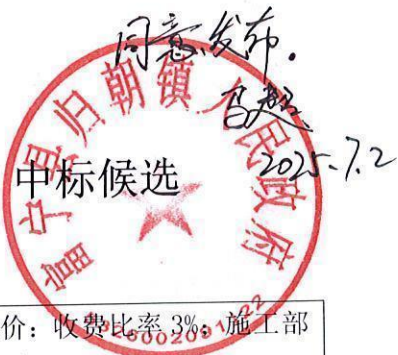 同意发布.
2025.7.2
富宁县归朝镇人民政府
中标候选
价：收费比率3%；施工部